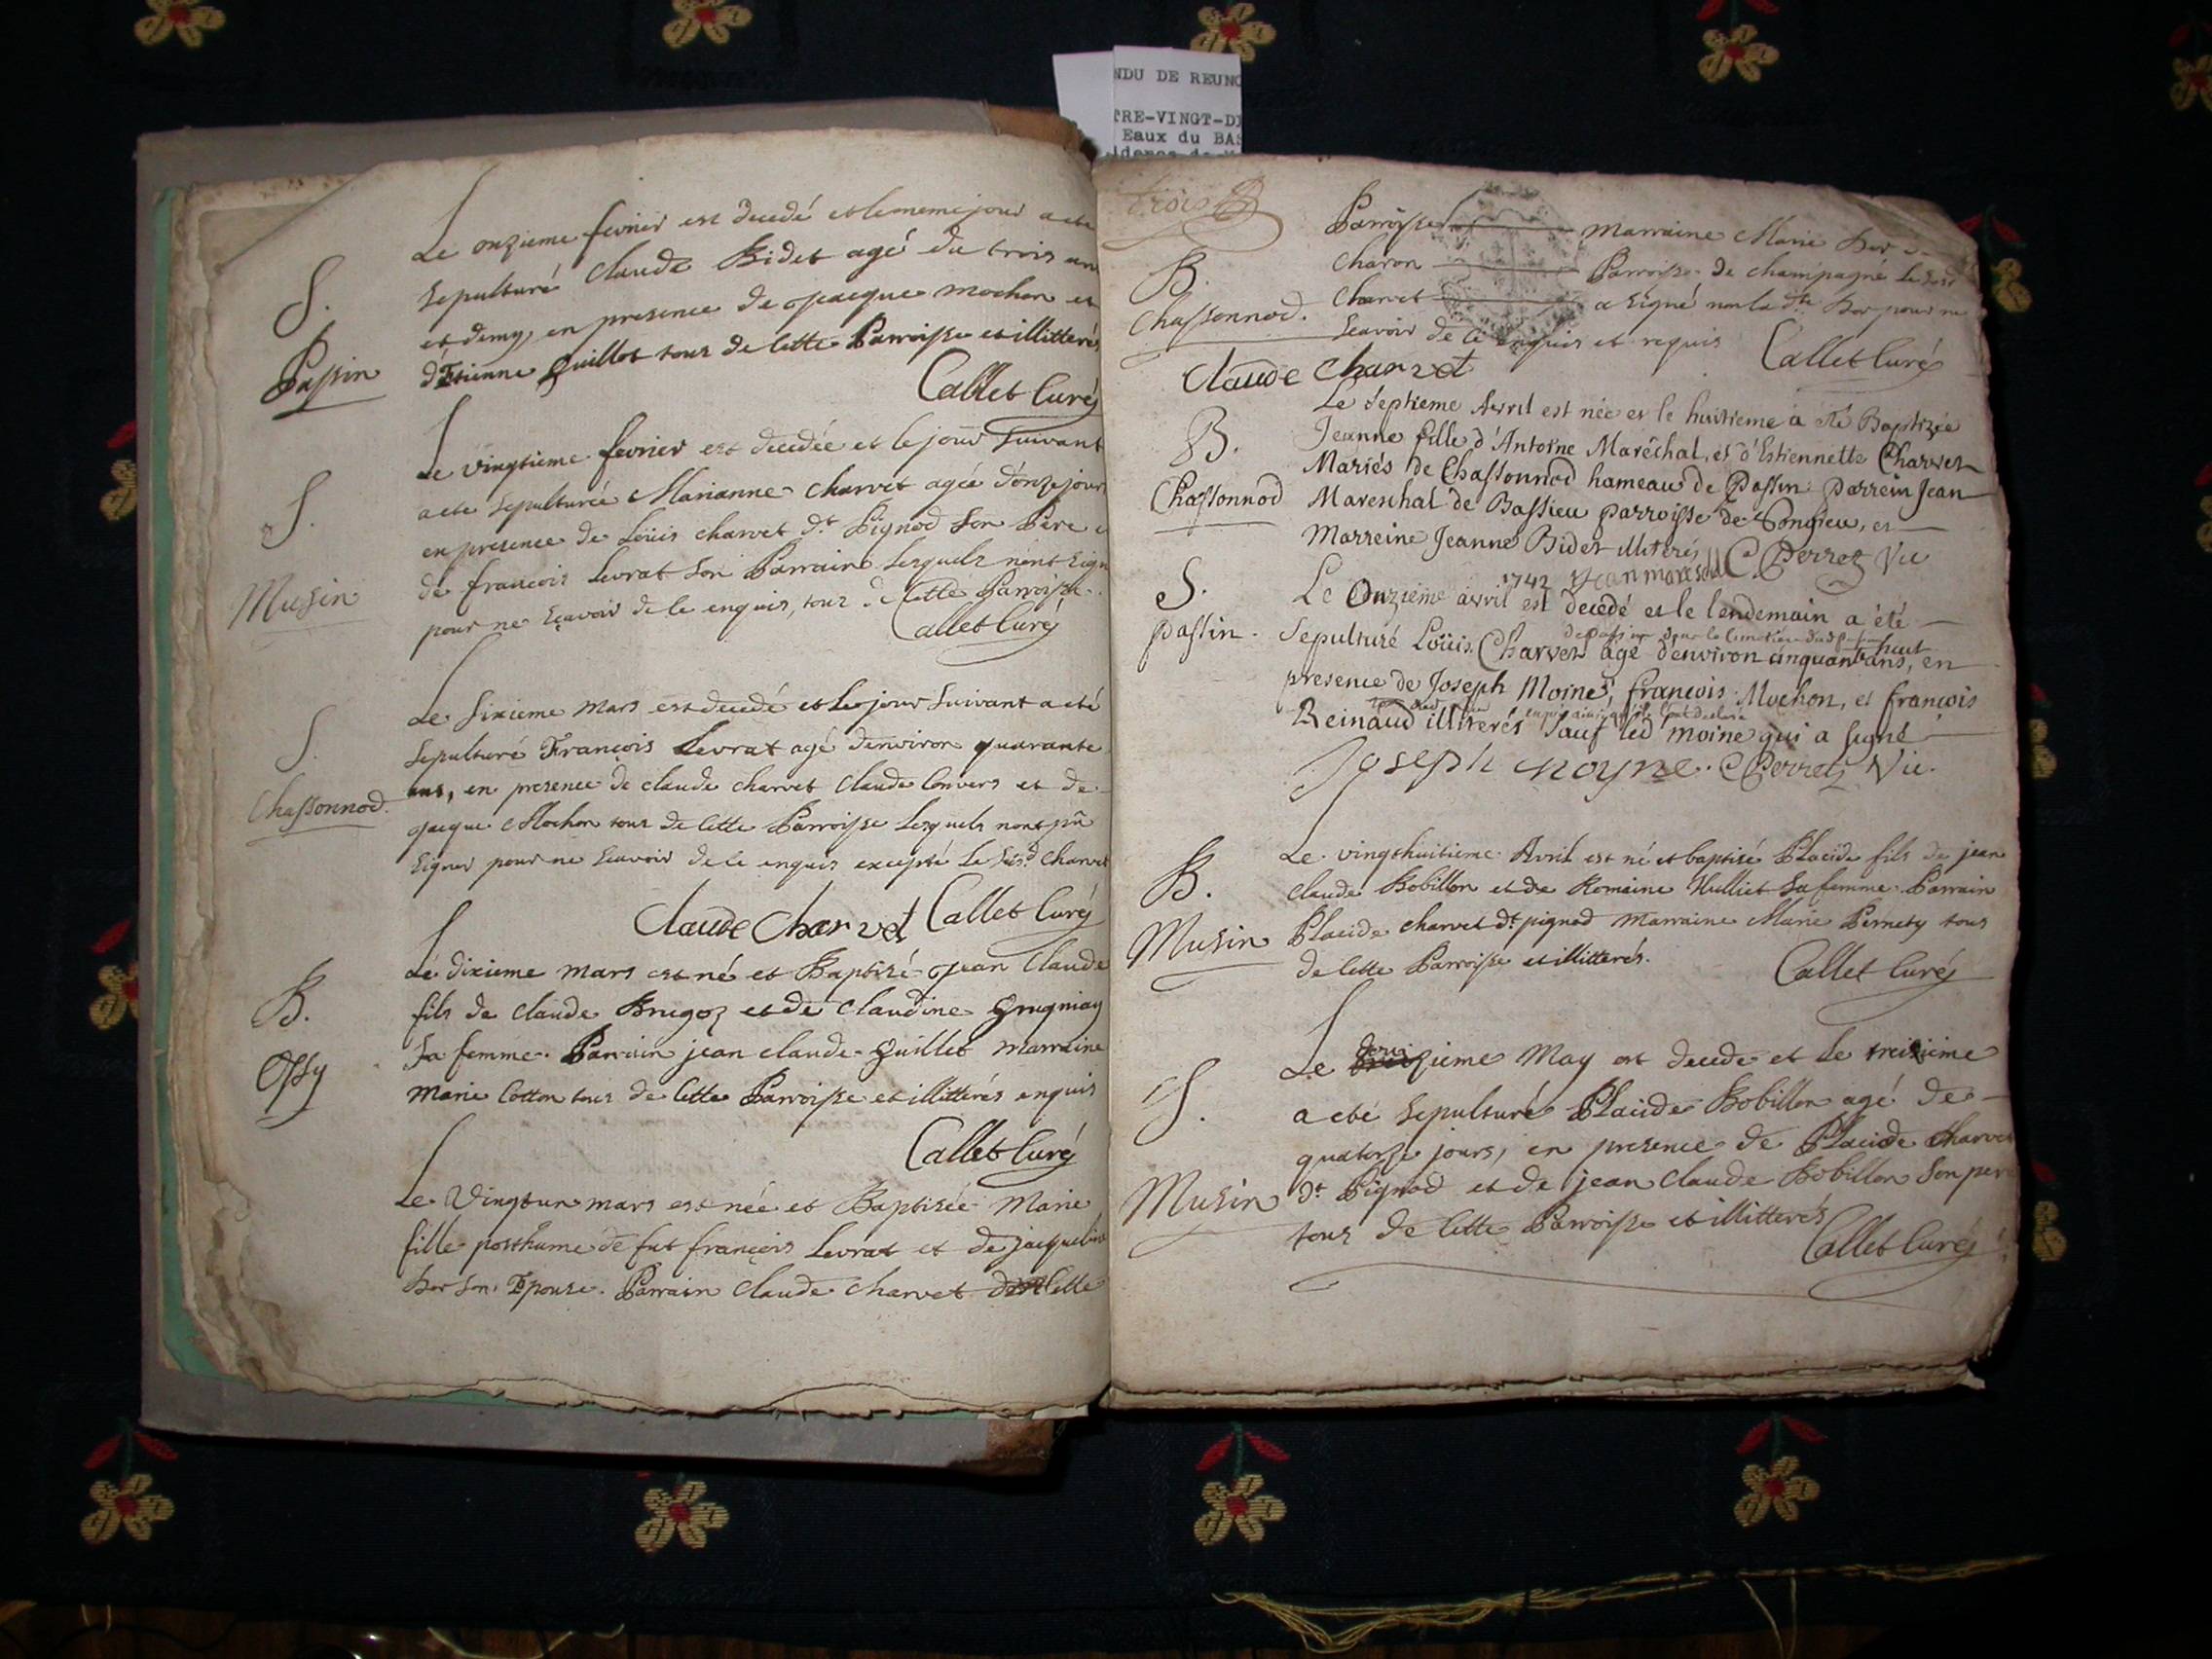 NDU DE REUNO
TRE-VINGT-DI
Eaux du BAS
Le onzieme fevrier est decedé et le meme jour a eté
S.
sepulturé Claude Bidet agé du trois an
et demy, en presence de jacque mochon et
Passin
d'Etienne Guillot tous de cette Parroisse et illitterés
Callet Curé
Le vingtieme fevrier est decedée et le jour suivant
S.
a ete sepulturée Marianne charvet agée d'onze jours
en presence de Loüis charvet dt Pignod son Pere e
Musin
de françois Levrat son Parrain lesquels n'ont sign
pour ne sçavoir de ce enquis, tous de cette Parroisse.
Callet Curé
Le sixieme mars est decedé et le jour suivant a eté
S.
sepulturé François Levrat agé denviron quarante
Chassonnod.
ans, en presence de claude charvet claude Convers et de
jacque Mochon tous de cette Parroisse lesquels n'ont pû
signer pour ne sçavoir de ce enquis excepté le susd charvet
Claude Charvet Callet Curé
Le dixieme mars est né et Baptisé jean Claude
B.
fils de claude Brugoz et de claudine Grugniay
Ossy
sa femme. Parrain jean claude Guillet marraine
Marie Cotton tous de cette Parroisse et illittérés enquis
Callet Curé
Le Vingt un mars est née et Baptisée Marie
fille posthume de fut françois Levrat et de jacqueline
Bor son Epouse. Parrain Claude charvet de cette
trois
Parroisse marraine Marie Bor
B.
charon Parroisse de champagne le susd
Chassonnod.
charvet a signé non la dte Bor pour ne
sçavoir de ce enquis et requis
Callet Curé
Claude Charvet
Le septieme Avril est née et le huitieme a été Baptizée
B.
Jeanne fille d'Antoine Maréchal, et d'Estiennette Charvet
Mariés de Chassonnod hameau de Passin Parrein Jean
Chassonnod
Mareschal de Bassieu parroisse de Songieu, et
Marreine Jeanne Bidet illiterés
Jean maresdal C Perret Vic
1742
S.
Le Onzieme avril est decedé et le lendemain a été
passin.
Sepulturé Loüis Charvet agé d'environ cinquante huit ans, en
presence de Joseph Moine, françois Mochon, et françois
Reinaud illiterés sauf led moine qui a signé
Joseph moyne. C Perret Vic.
Le vingthuitieme Avril est né et baptisé Placide fils de jean
B.
claude Bobillon et de Romaine Hulliet sa femme. Parrain
Musin
Placide charvet dt pignod marraine Marie Pernety tous
de cette Parroisse et illitterés.
Callet Curé
Le douzieme May est decede et le treizieme
S.
a eté sepulturé Placide Bobillon agé de
quatorze jours, en presence de Placide Charvet
Musin
dt Pignod et de jean claude Bobillon son pere
tous de cette Parroisse et illitterés
Callet Curé